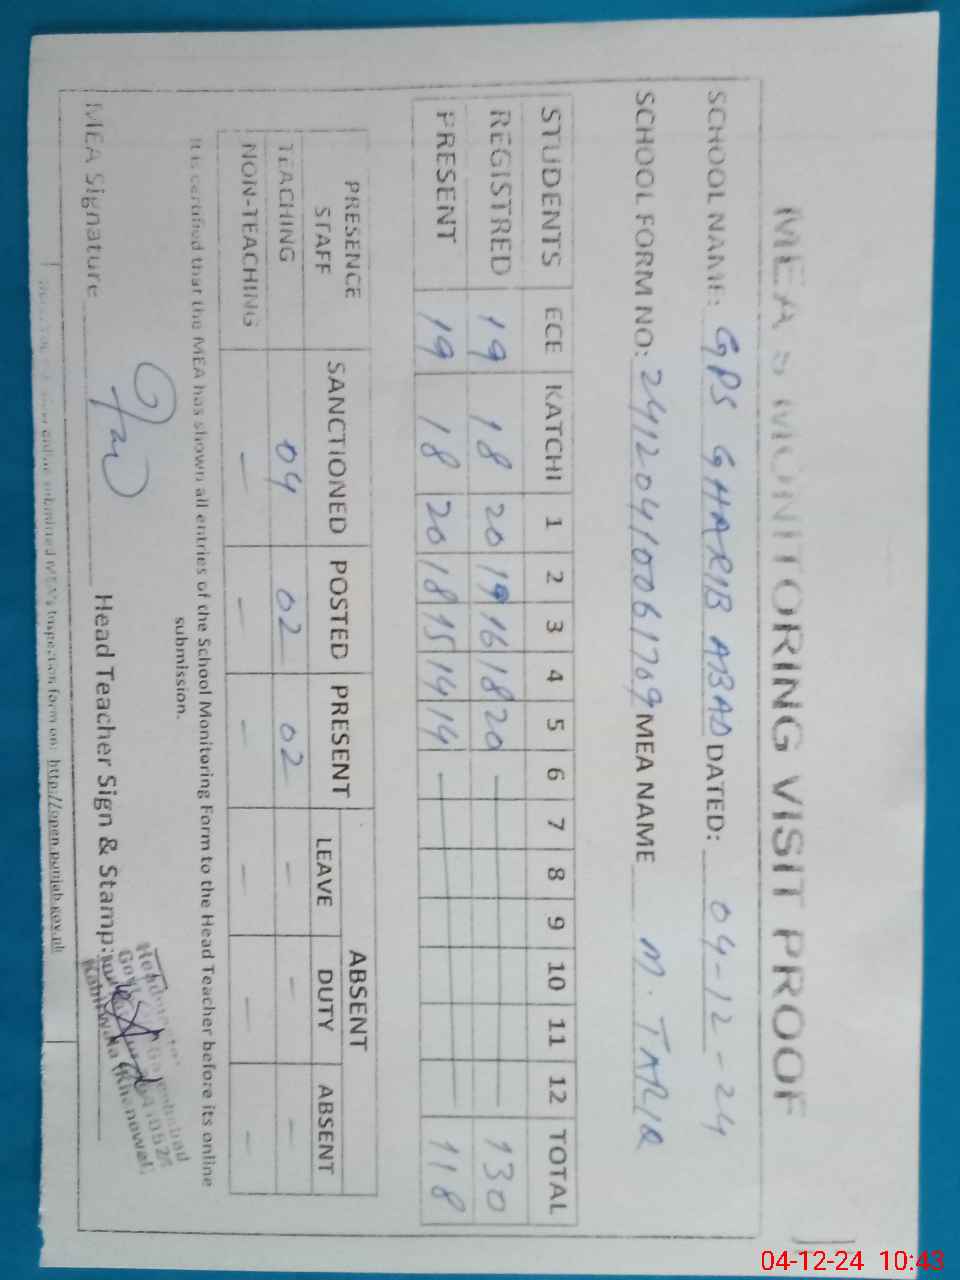 MEA's MONITORING VISIT PROOF
SCHOOL NAME: GPS GHARIB ABAD DATED: 04-12-24
SCHOOL FORM NO: 24120410061709 MEA NAME M. TARIQ
STUDENTS ECE KATCHI 1 2 3 4 5 6 7 8 9 10 11 12 TOTAL
REGISTRED 19 18 20 19 16 18 20 - 130
PRESENT 19 18 20 18 15 14 14 - 118
PRESENCE STAFF SANCTIONED POSTED PRESENT ABSENT
LEAVE DUTY ABSENT
TEACHING 04 02 02 - - -
NON-TEACHING - - - - - -
It is certified that the MEA has shown all entries of the School Monitoring Form to the Head Teacher before its online
submission.
MEA Signature Head Teacher Sign & Stamp:
online submitted MEA's Inspection form on: http://open.punjab.gov.pk
04-12-24 10:43